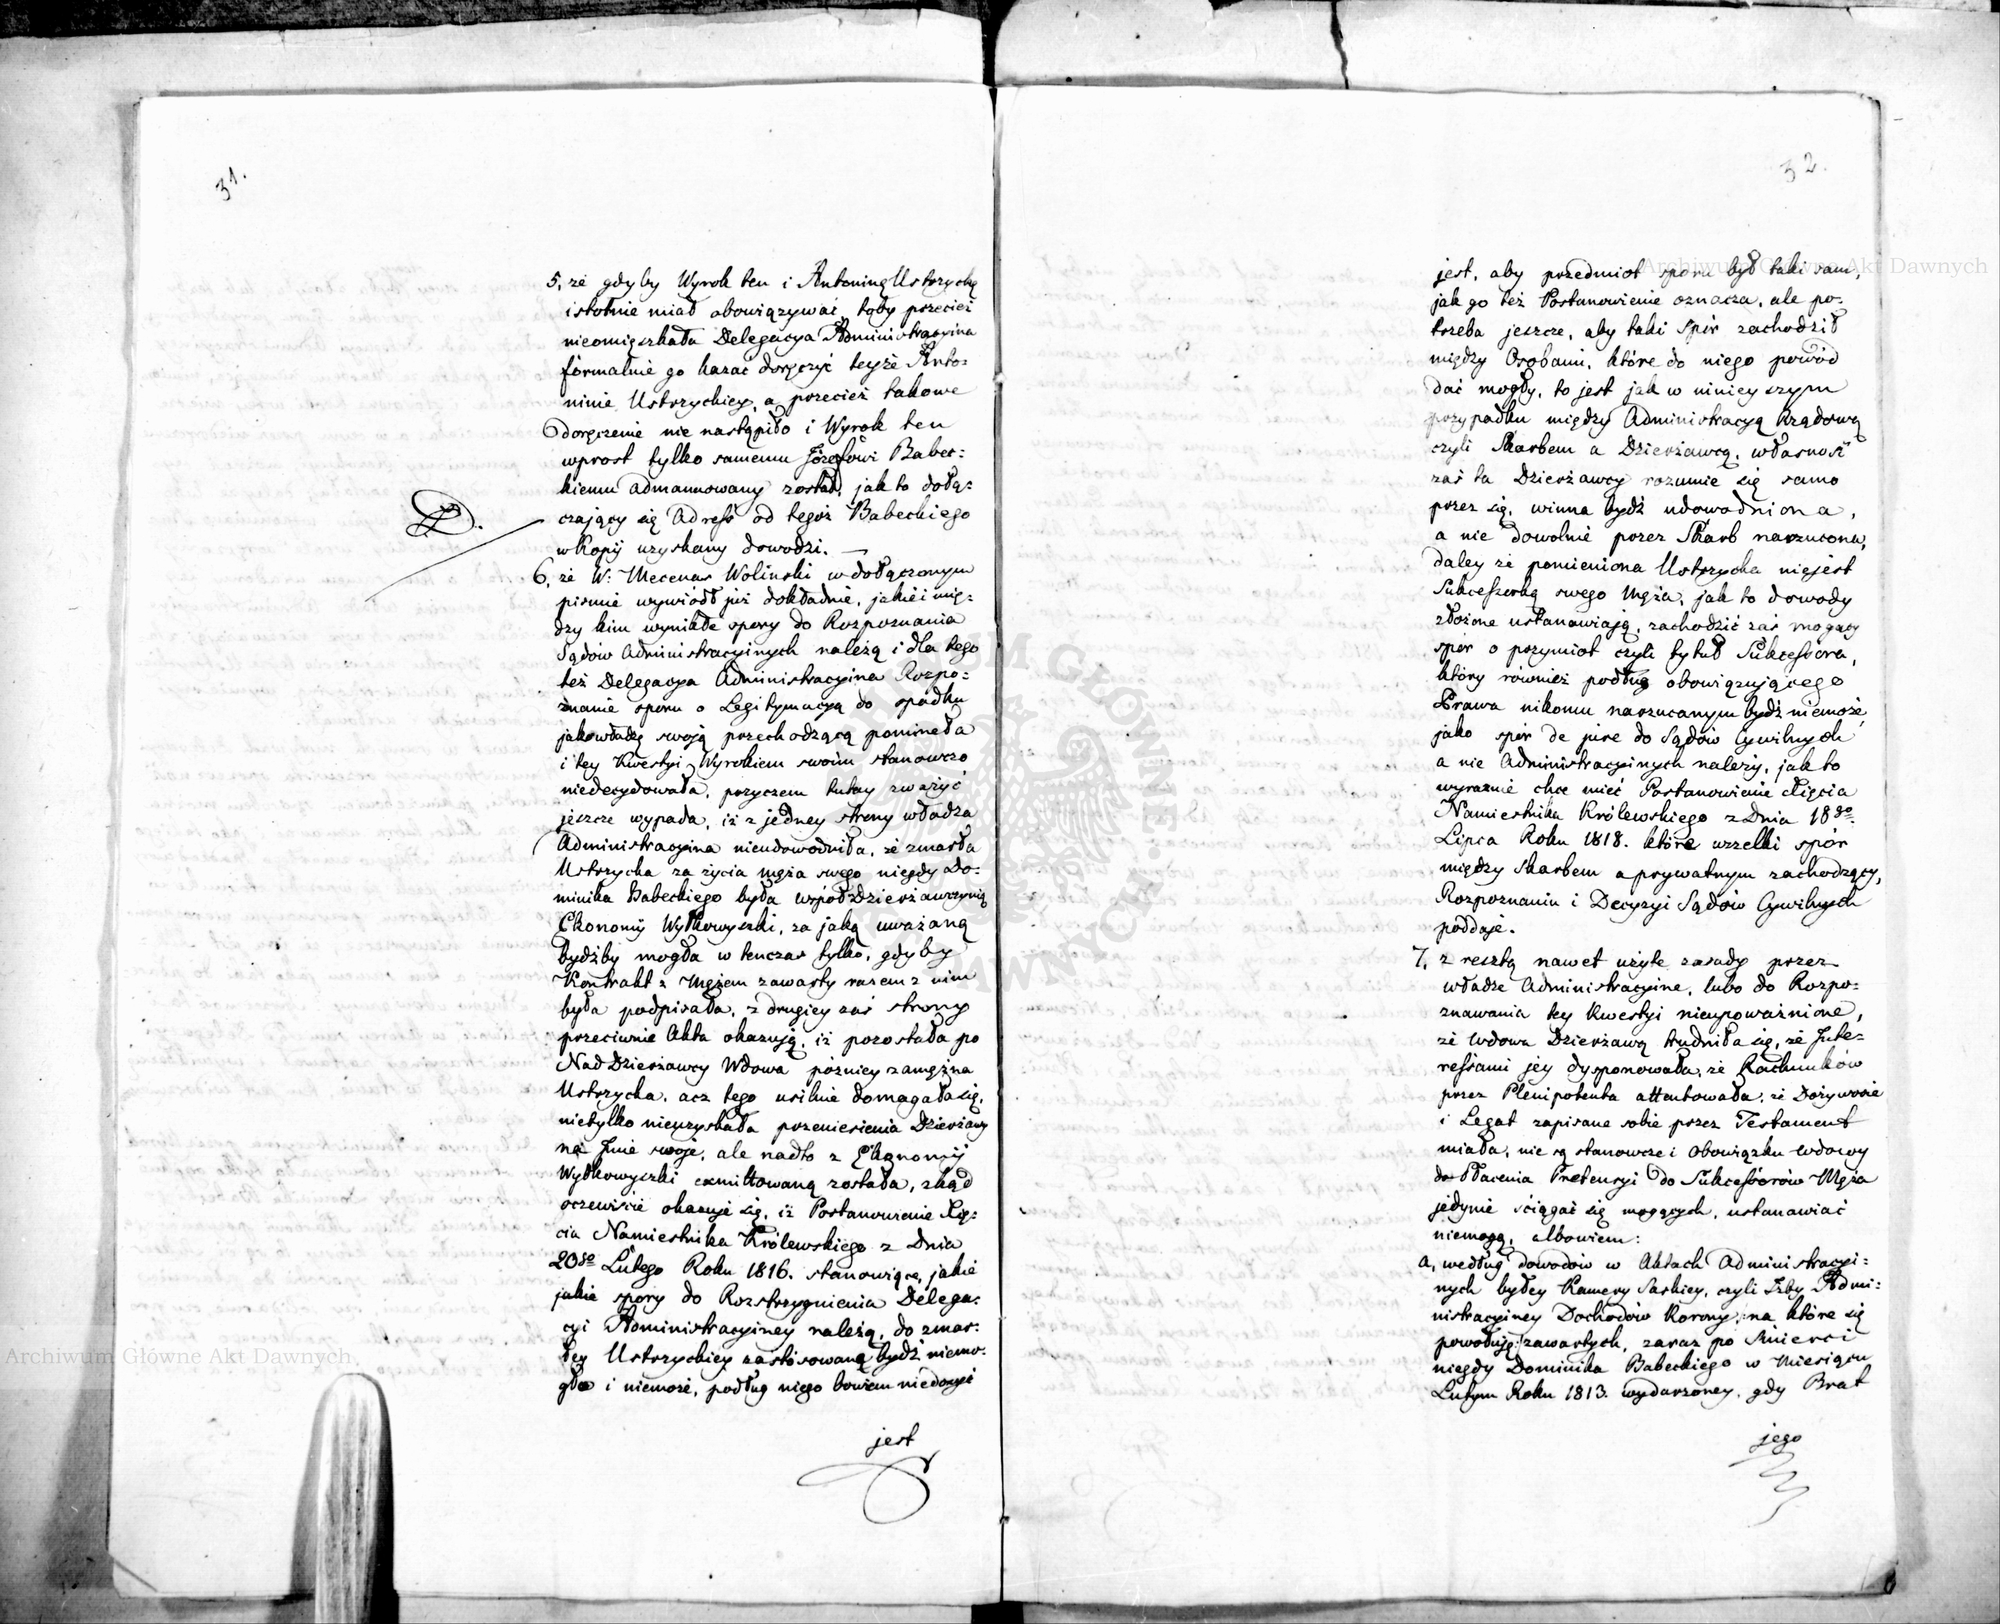 31.
5, że gdyby Wyrok ten i Antoninę Ustrzycką
istotnie miał obowiązywać, toby przecież
nieomieszkała Delegacya Administracyina
formalnie go kazać doręczyć teyże Anto-
ninie Ustrzyckiey, a przecież takowe
doręczenie nie nastąpiło i Wyrok ten
wprost tylko samemu Józefowi Babec-
kiemu admanuowany został, jak to dołą-
czający się Adress od tegoż Babeckiego
w Kopij uzyskany dowodzi. —
D.
6, że W: Mecenas Woliński w dołączonym
piśmie wywiódł już dokładnie, jakie i mię-
dzy kim wynikłe spory do Rozpoznania
Sądów Administracyinych należą i dla tego
też Delegacya Administracyina Rozpo-
znanie sporu o Legitymacyą do spadku
jako władzę swoją przechodzącą pominęła
i tey Kwestyi Wyrokiem swoim stanowczo
niedecydowała, przyczem tutay zważyć
jeszcze wypada, iż z jedney strony władza
Administracyina nieudowodniła, że zmarła
Ustrzycka za życia męża swego niegdy Do-
minika Babeckiego była współdzierżawczynią
Ekonomij Wyłkowyszki, za jaką uważaną
bydźby mogła w tenczas tylko, gdyby
Kontrakt z Mężem zawarty razem z nim
była podpisała, z drugiey zaś strony
przeciwnie Akta okazują, iż pozostała po
Nad Dzierżawcy Wdowa późniey zamężna
Ustrzycka, acz tego usilnie domagała się,
nietylko nieuzyskała przeniesienia Dzierżawy
na Imie swoje, ale nadto z Ekonomij
Wyłkowyszki exmittowaną została, zkąd
oczewiście okazuje się, iż Postanowienie Xię-
cia Namiestnika Królewskiego z Dnia
20go Lutego Roku 1816. stanowiące, jakie
jakie spory do Rozstrzygnienia Delega-
cyi Administracyiney należą, do zmar-
łey Ustrzyckiey zastosowaną bydź niemo-
gło i niemoże, podług niego bowiem niedosyć
jest
32.
jest, aby przedmiot sporu był taki sam,
jak go też Postanowienie oznacza, ale po-
trzeba jeszcze, aby taki spór zachodził
między Osobami, które do niego powód
dać mogły, to jest jak w ninieyszym
przypadku między Administracyą Rządową
czyli Skarbem a Dzierżawcą, własność
zaś ta Dzierżawcy rozumie się samo
przez się, winna bydź udowodniona,
a nie dowolnie przez Skarb narzucona,
daley że pomieniona Ustrzycka niejest
Sukcessorką swego Męża, jak to dowody
złożone ustanawiają, zachodzić zaś mogący
spór o przymiot czyli tytuł Sukcessora,
który również podług obowiązującego
Prawa nikomu narzucanym bydź niemoże,
jako spór de jure do Sądów Cywilnych
a nie Administracyinych należy, jak to
wyraźnie chce mieć Postanowienie Xięcia
Namiestnika Królewskiego z Dnia 18go
Lipca Roku 1818. które wszelki spór
między Skarbem a prywatnym zachodzący,
Rozpoznaniu i Decyzyi Sądów Cywilnych
poddaje.
7, z resztą nawet użyte zasady przez
władze Administracyine, lubo do Rozpo-
znawania tey Kwestyi nieupoważnione,
że Wdowa Dzierżawą trudniła się, że Inte-
ressami jey dysponowała, że Rachunków
przez Plenipotenta attentowała, że Dożywocie
i Legat zapisane sobie przez Testament
miała, nie są stanowcze i obowiązku wdowy
do Płacenia Pretensyi do Sukcessorów Męża
jedynie ściągać się mogących, ustanawiać
niemogą, albowiem:
a, według dowodów w Aktach Administracyi-
nych byłey Kamery Saskiey, czyli Izby Admi-
nistracyiney Dochodów Korony, na które się
powołuję: zawartych, zaraz po śmierci
niegdy Dominika Babeckiego w Miesiącu
Lutym Roku 1813. wydarzoney, gdy Brat
jego